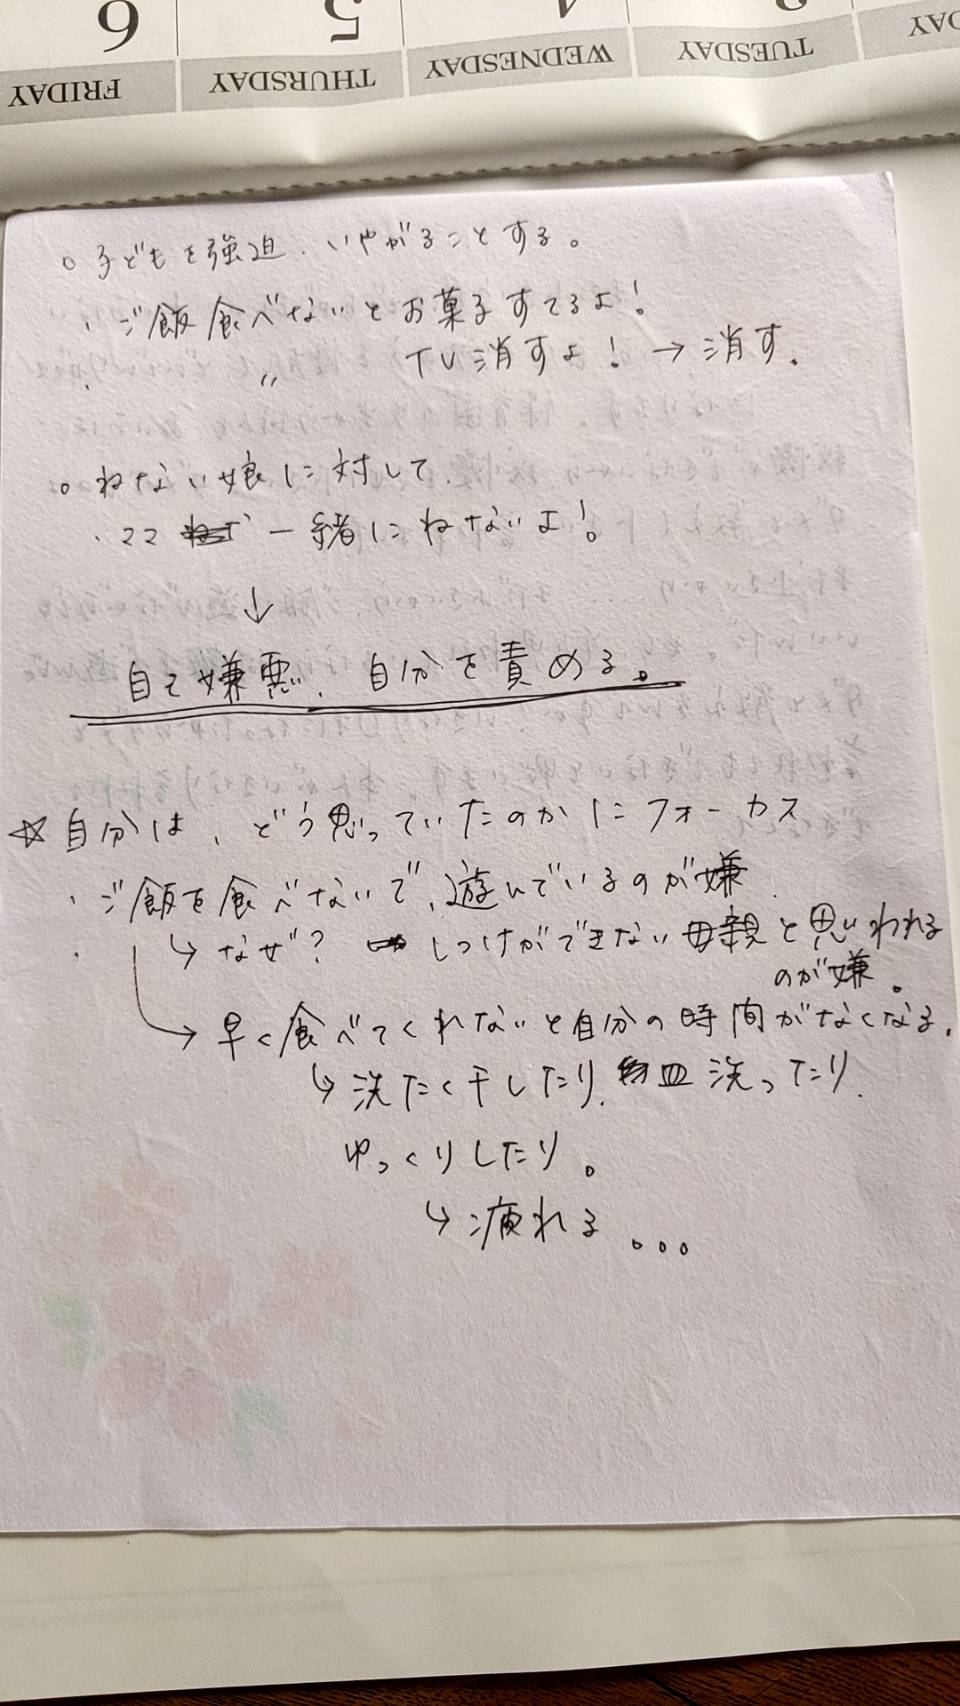 6 5
FRIDAY THURSDAY WEDNESDAY TUESDAY
○子どもを強迫、いやがることする。
・ご飯食べないとお菓子すてるよ!
・ 〃 TV消すよ! → 消す.
○ねない娘に対して
・ママ 一緒にねないよ!
↓
自己嫌悪、自分を責める。
☆自分は、どう思っていたのかにフォーカス
・ご飯を食べないで、遊んでいるのが嫌.
↳なぜ? しつけができない母親と思われる
のが嫌。
→早く食べてくれないと自分の時間がなくなる.
↳洗たく干したり、皿洗ったり
ゆっくりしたり。
↳疲れる...